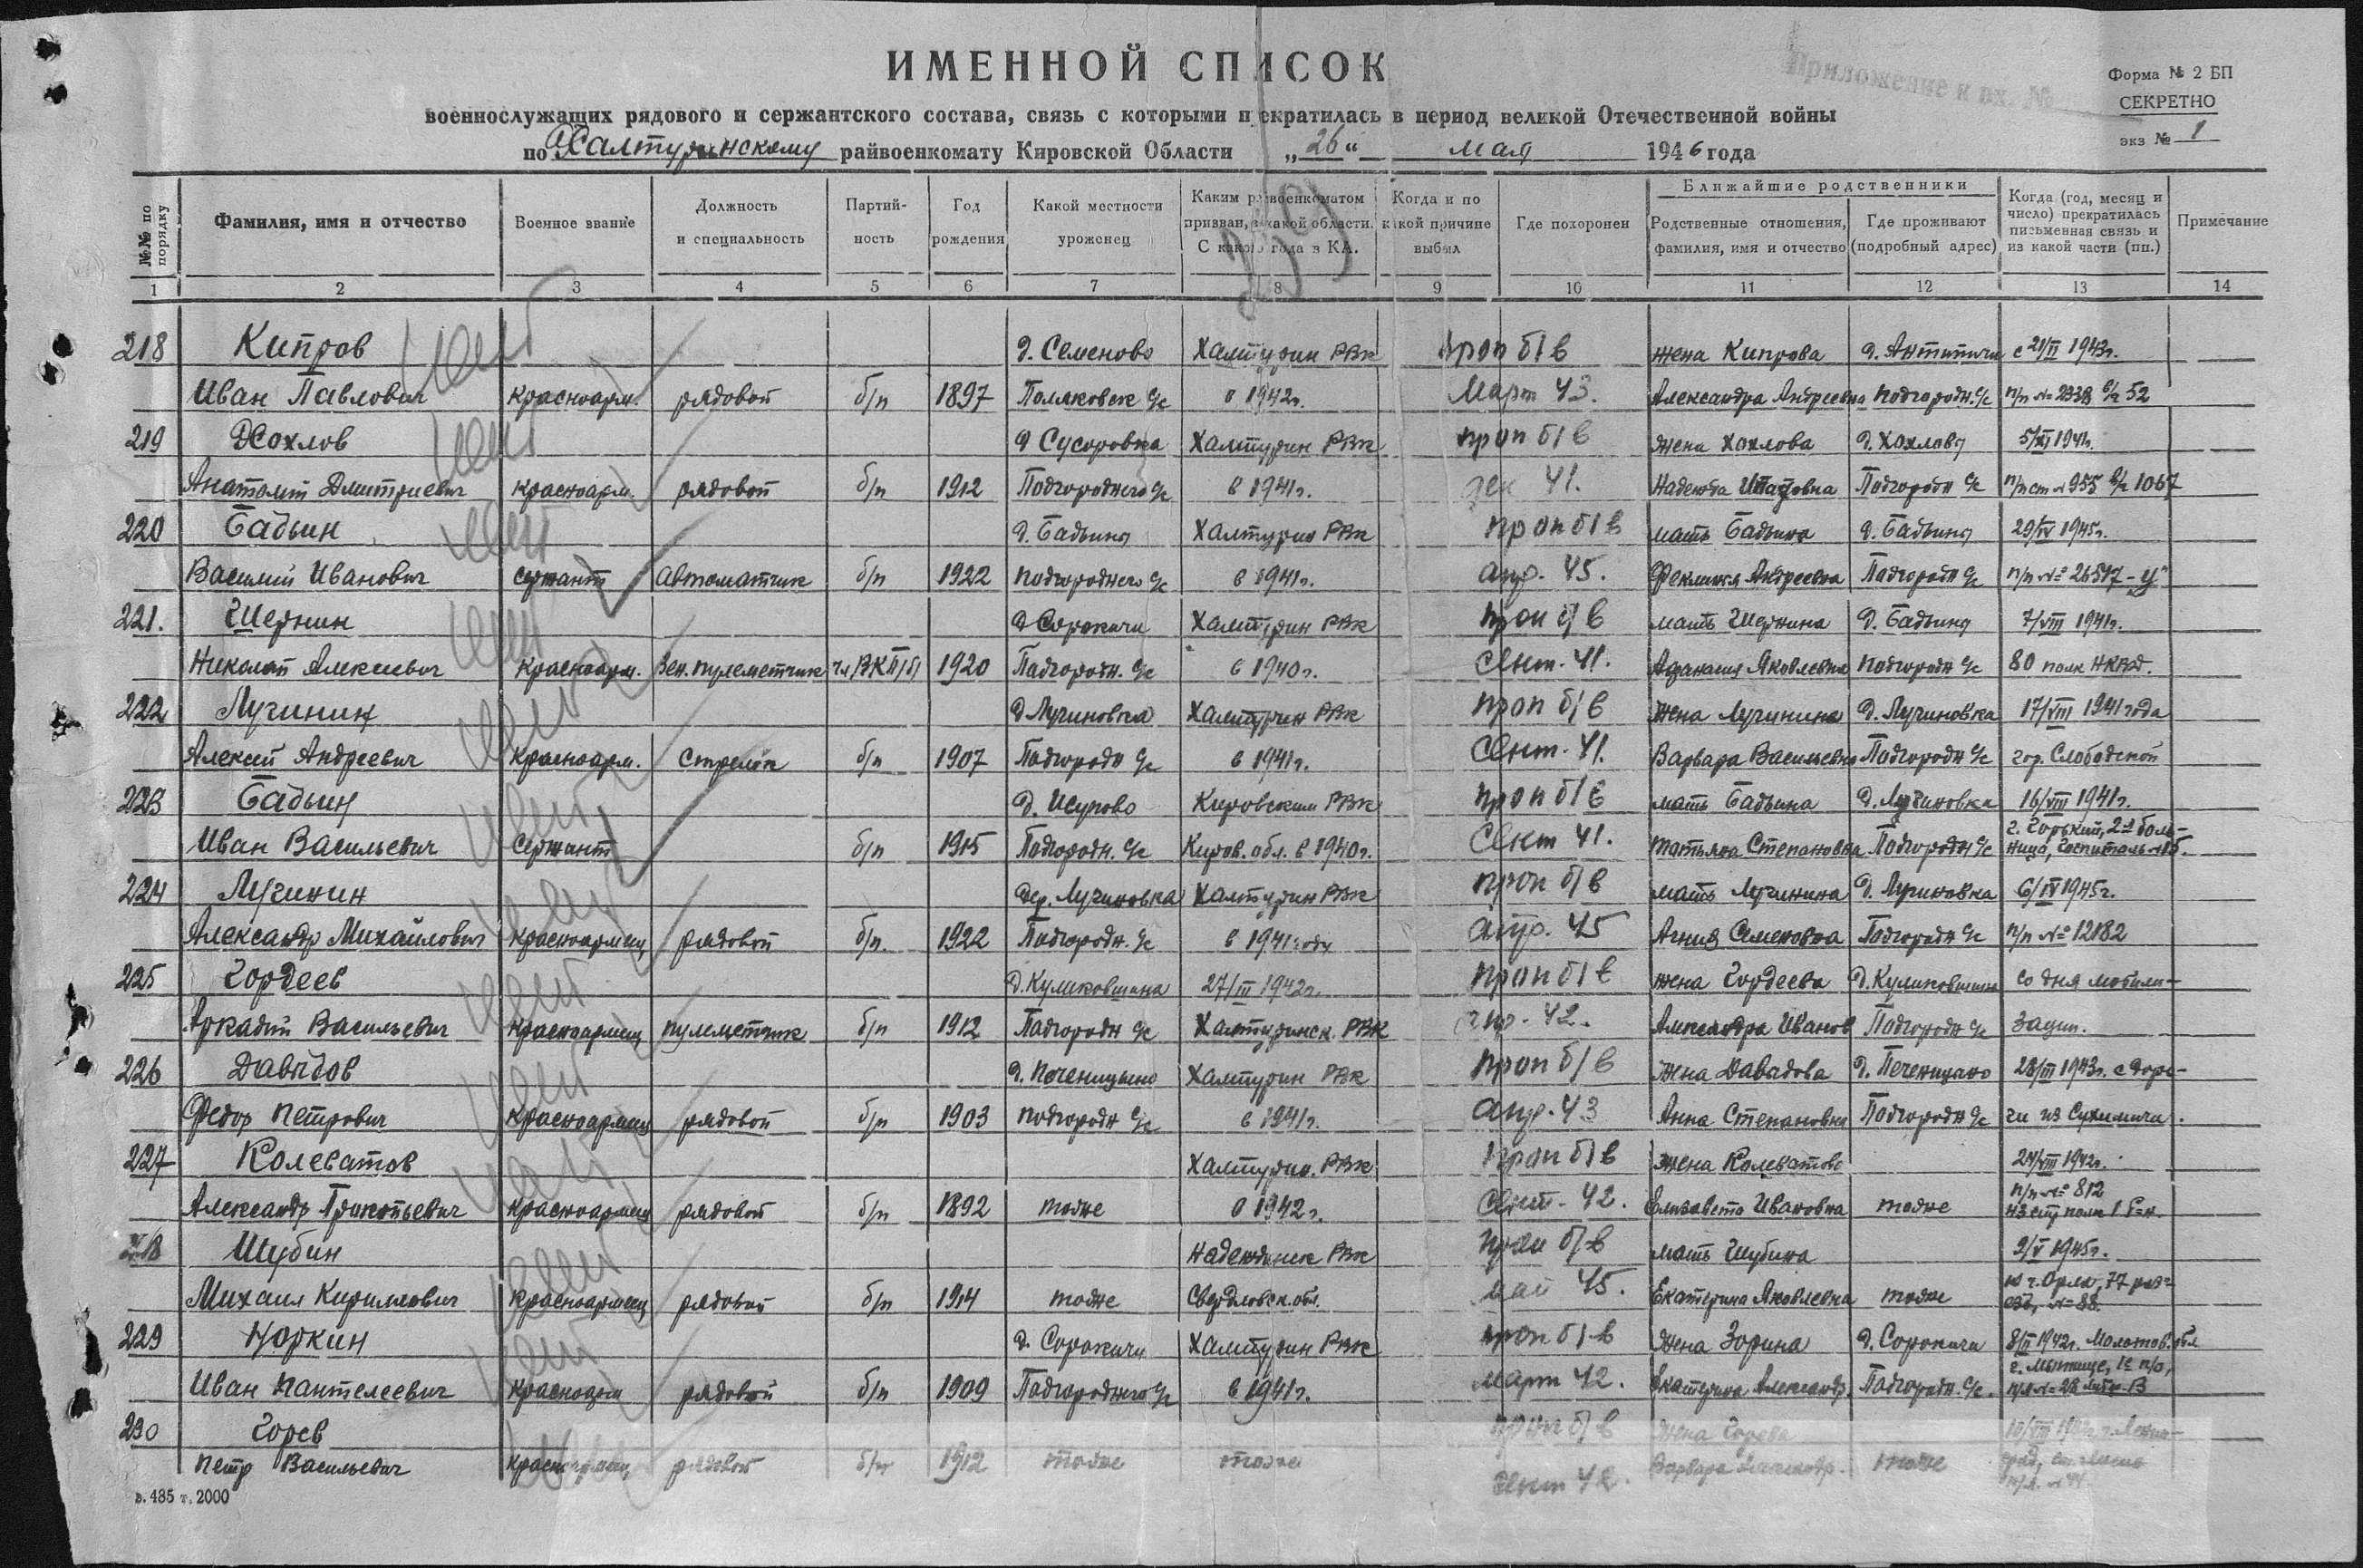 ИМЕННОЙ СПИСОК
Приложение к вх. №
Форма № 2 БП
СЕКРЕТНО
экз № 1
военнослужащих рядового и сержантского состава, связь с которыми прекратилась в период великой Отечественной войны
по Халтуринскому райвоенкомату Кировской Области „26“ мая 1946 года
№№ по порядку Фамилия, имя и отчество Военное звание Должность и специальность Партийность Год рождения Какой местности уроженец Каким райвоенкоматом призван, в какой области. С какого года в КА. Когда и по какой причине выбыл Где похоронен Ближайшие родственники Родственные отношения, фамилия, имя и отчество Где проживают (подробный адрес) Когда (год, месяц и число) прекратилась письменная связь и из какой части (пп.) Примечание
1 2 3 4 5 6 7 8 9 10 11 12 13 14
218 Кипров д. Семеново Халтурин РВК проп б/в жена Кипрова с 21/II 1943г.
Иван Павлович красноарм. рядовой б/п 1897 Поляковск с/с в 1942г. Март 43. Александра Андреевна Подгородн. с/с п/п № 2938 ч/ 52
219 Хохлов д Сусоровка Халтурин РВК проп б/в жена Хохлова д. Хохловы 5/XI 1941г.
Анатолий Дмитриевич красноарм. рядовой б/п 1912 Подгороднего с/с в 1941г. дек 41. Надежда Подгородн с/с п/п ст 955 1067
220 Бадьин д. Бадьины Халтурин РВК проп б/в мать Бадьина д. Бадьины 29/IV 1945г.
Василий Иванович сержант Автоматчик б/п 1922 подгороднего с/с в 1941г. апр. 45. Андреевна Подгородн с/с п/п № 26517-"У"
221. Шернин д Сорокичи Халтурин РВК проп б/в мать Шернина д. Бадьины 7/VIII 1941г.
Николай Алексеевич Красноарм. Зен. пулеметчик чл/ВКП/б/ 1920 Подгородн. с/с в 1940г. Сент. 41. Афанасия Яковлевна Подгородн с/с 80 полк НКВД.
222 Лучинин д Лучиновка Халтурин РВК проп б/в жена Лучинина д. Лучиновка 17/VIII 1941 года
Алексей Андреевич Красноарм. Стрелок б/п 1907 Подгородн с/с в 1941г. Сент. 41. Варвара Васильевна Подгородн с/с гор. Слободской
223 Бадьин д. Исупово Кировским РВК проп б/в мать Бадьина д. Лучиновка 16/VIII 1941г.
Иван Васильевич Сержант б/п 1915 Подгородн. с/с Киров. обл. в 1940г. Сент 41. Татьяна Степановна Подгородн с/с г. Горький, 2-я больница, госпиталь
224 Лучинин дер. Лучиновка Халтурин РВК проп б/в мать Лучинина д. Лучиновка 6/IV 1945г.
Александр Михайлович красноармеец рядовой б/п. 1922 Подгородн. с/с в 1941 году апр. 45 Агния Семеновна Подгородн с/с п/п № 12182
225 Гордеев д. Куликовщина 27/III 1942г. проп б/в жена Гордеева д. Куликовщина со дня мобили-
Аркадий Васильевич красноармеец пулеметчик б/п 1912 Подгородн с/с Халтуринск. РВК апр. 42. Александра Иванов Подгородн с/с зации.
226 Давыдов д. Печеницыно Халтурин РВК проп б/в жена Давыдова д. Печеницыно 28/III 1943г. с доро-
Федор Петрович красноармеец рядовой б/п 1903 подгородн с/с в 1941г. апр. 43 Анна Степановна Подгородн с/с ги из Сухиничи.
227 Колеватов Халтурин. РВК проп б/в жена Колеватова 24/VIII 1942г.
Александр Прокопьевич красноармеец рядовой б/п 1892 тоже в 1942г. сент. 42. Елизавета Ивановна тоже п/п № 812
228 Шубин Надеждинск РВК проп б/в мать Шубина 9/V 1945г.
Михаил Кириллович красноармеец рядовой б/п 1914 тоже Свердловск. обл. май 45. Екатерина Яковлевна тоже г. Орла, 77 разъезд, № 88.
229 Норкин д. Сорокичи Халтурин РВК проп б/в жена Зорина д. Сорокичи 8/II 1942г. Молотов. обл
Иван Пантелеевич красноарм рядовой б/п 1909 Подгороднего с/с в 1941г. март 42. Екатерина Александр. Подгородн. с/с. п/я № 28
230 Горев проп б/в жена Горева
Петр Васильевич красноармеец рядовой б/п 1912 тоже тоже 42. Варвара тоже
з. 485 т. 2000